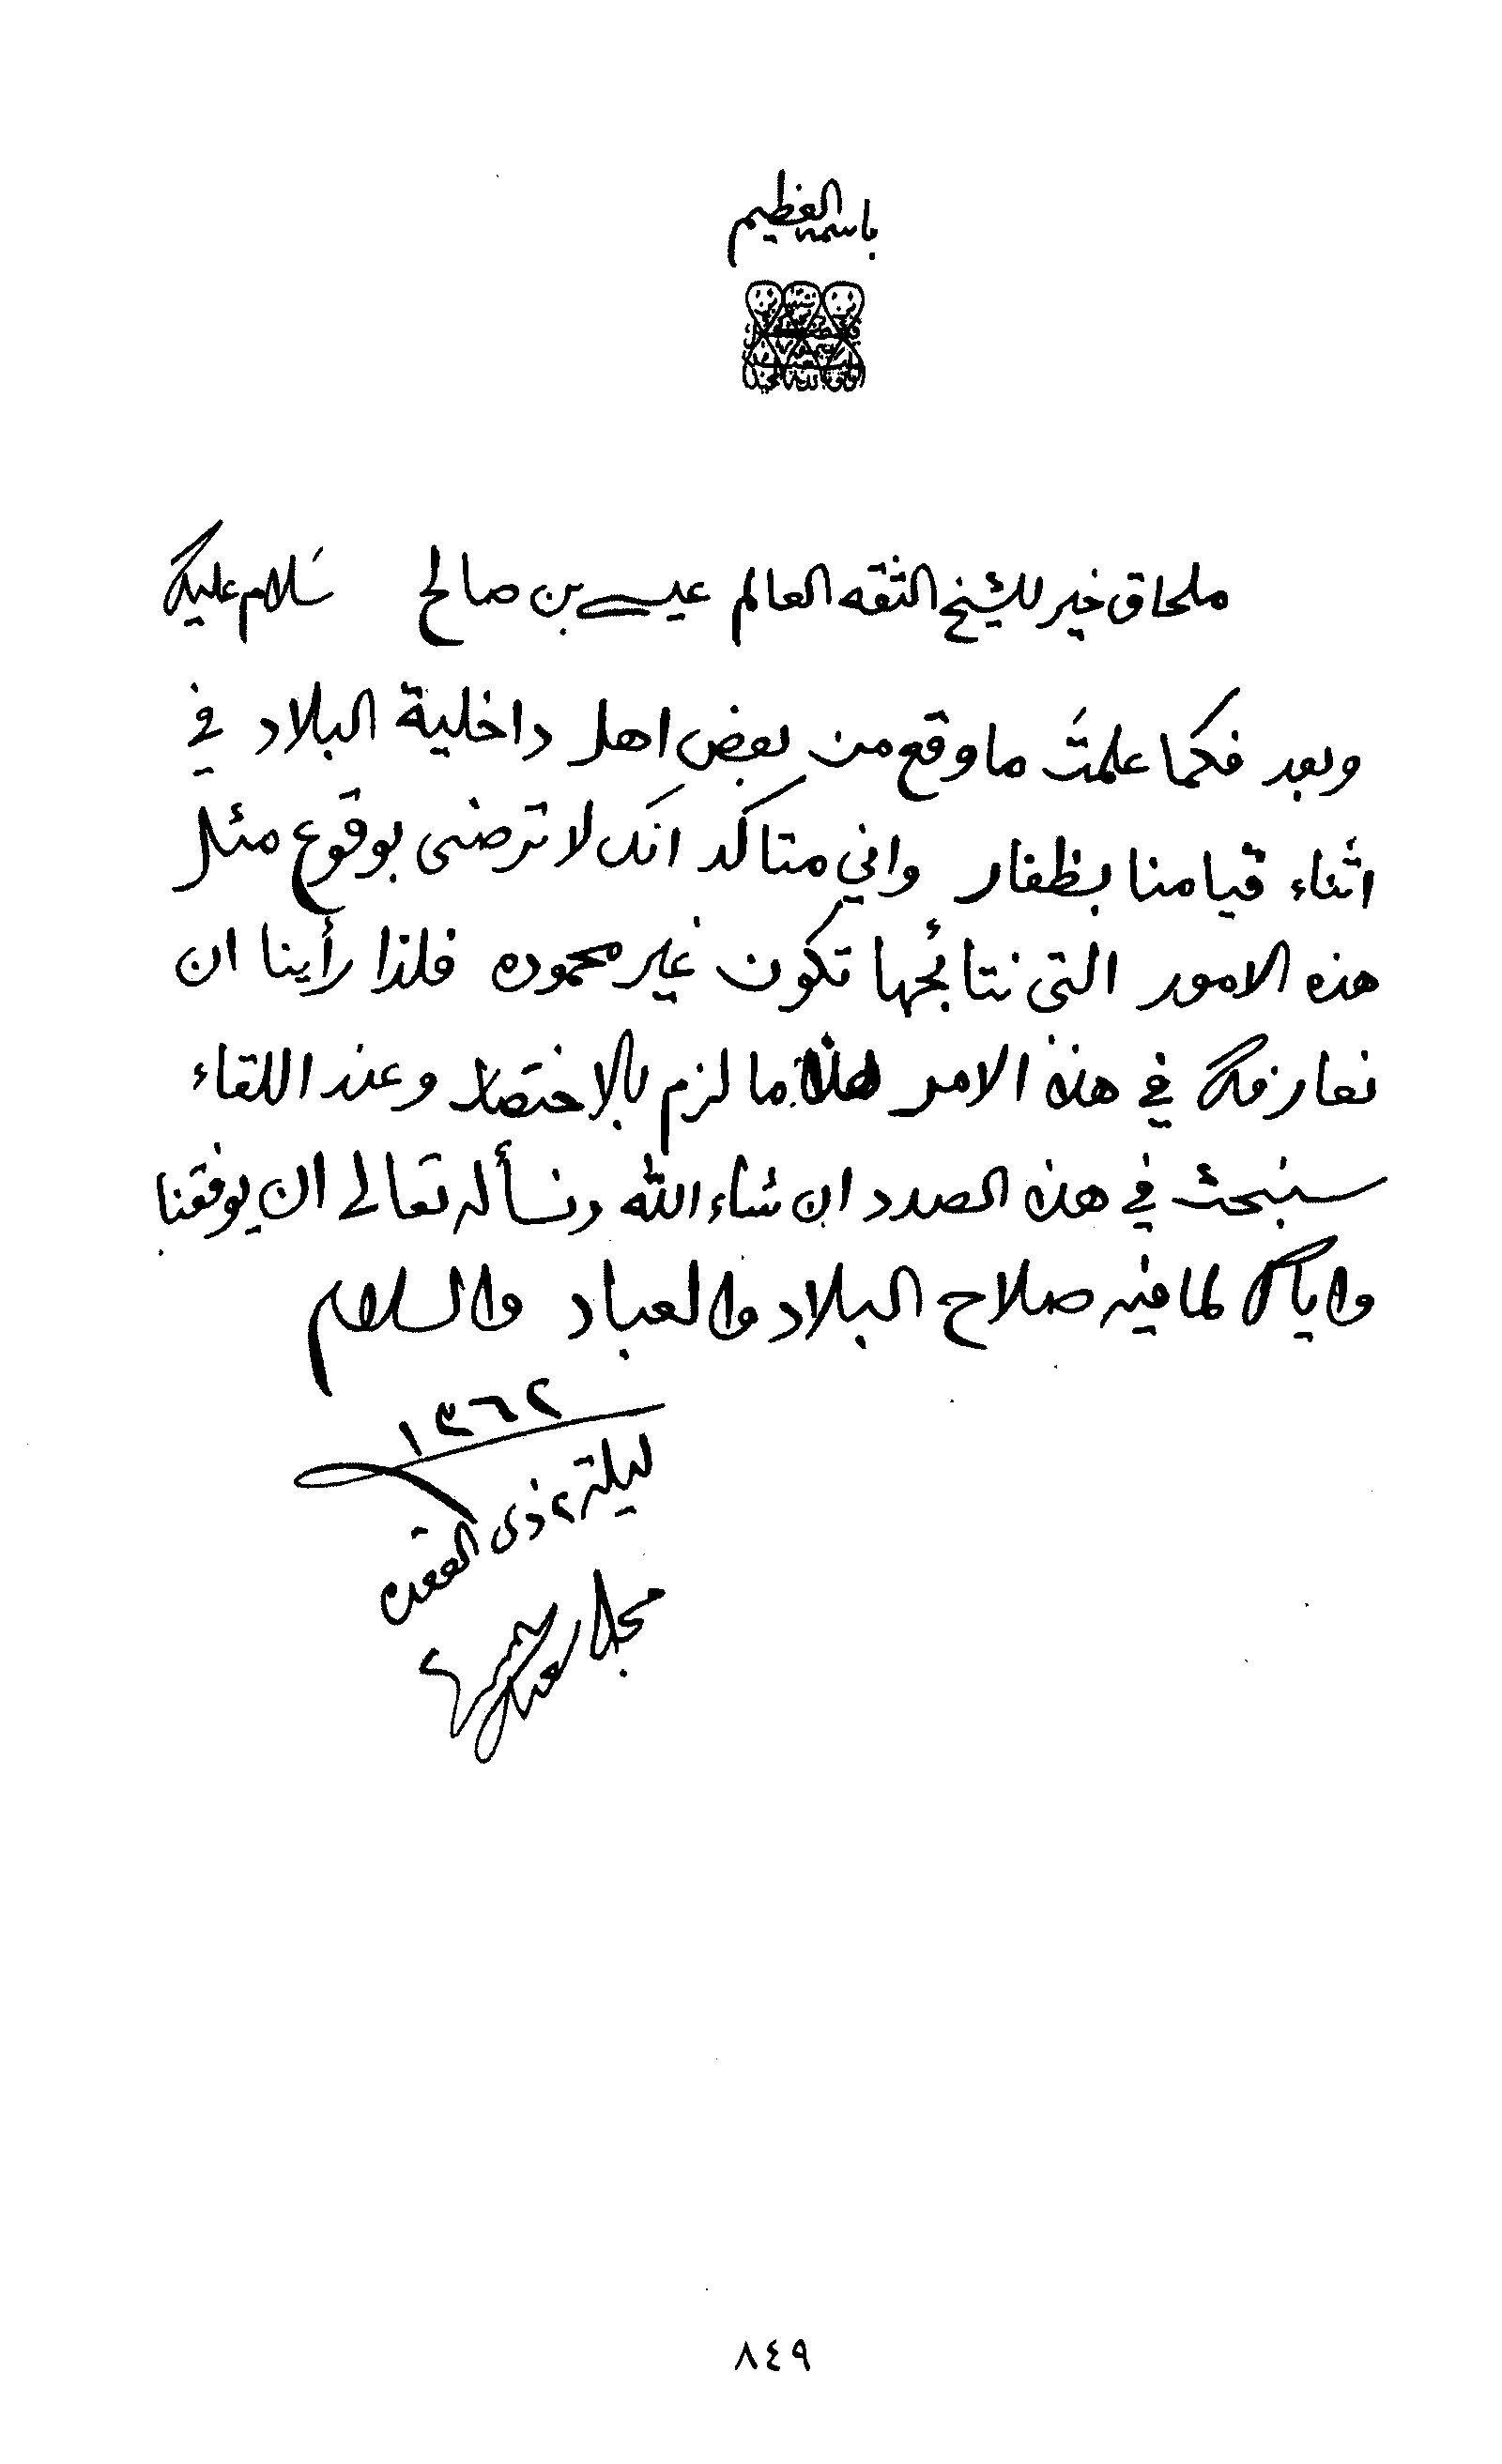 باسمه العظيم
ملحاق خير للشيخ الثقه العالم عيسى بن صالح سلام عليك
وبعد فكما علمت ما وقع من بعض اهل داخلية البلاد في
اثناء قيامنا بظفار واني متاكد انك لا ترضى بوقوع مثل
هذه الامور التي نتائجها تكون غير محموده فلذا رأينا ان
نعارفك في هذه الامر هذا ما لزم بالاختصار وعند اللقاء
سنبحث في هذه الصدد ان شاء الله ونسأله تعالى ان يوفقنا
واياك لما فيه صلاح البلاد والعباد والسلام
١٣٦٢
ليلة ٢ ذى القعده
سعيد
٨٤٩